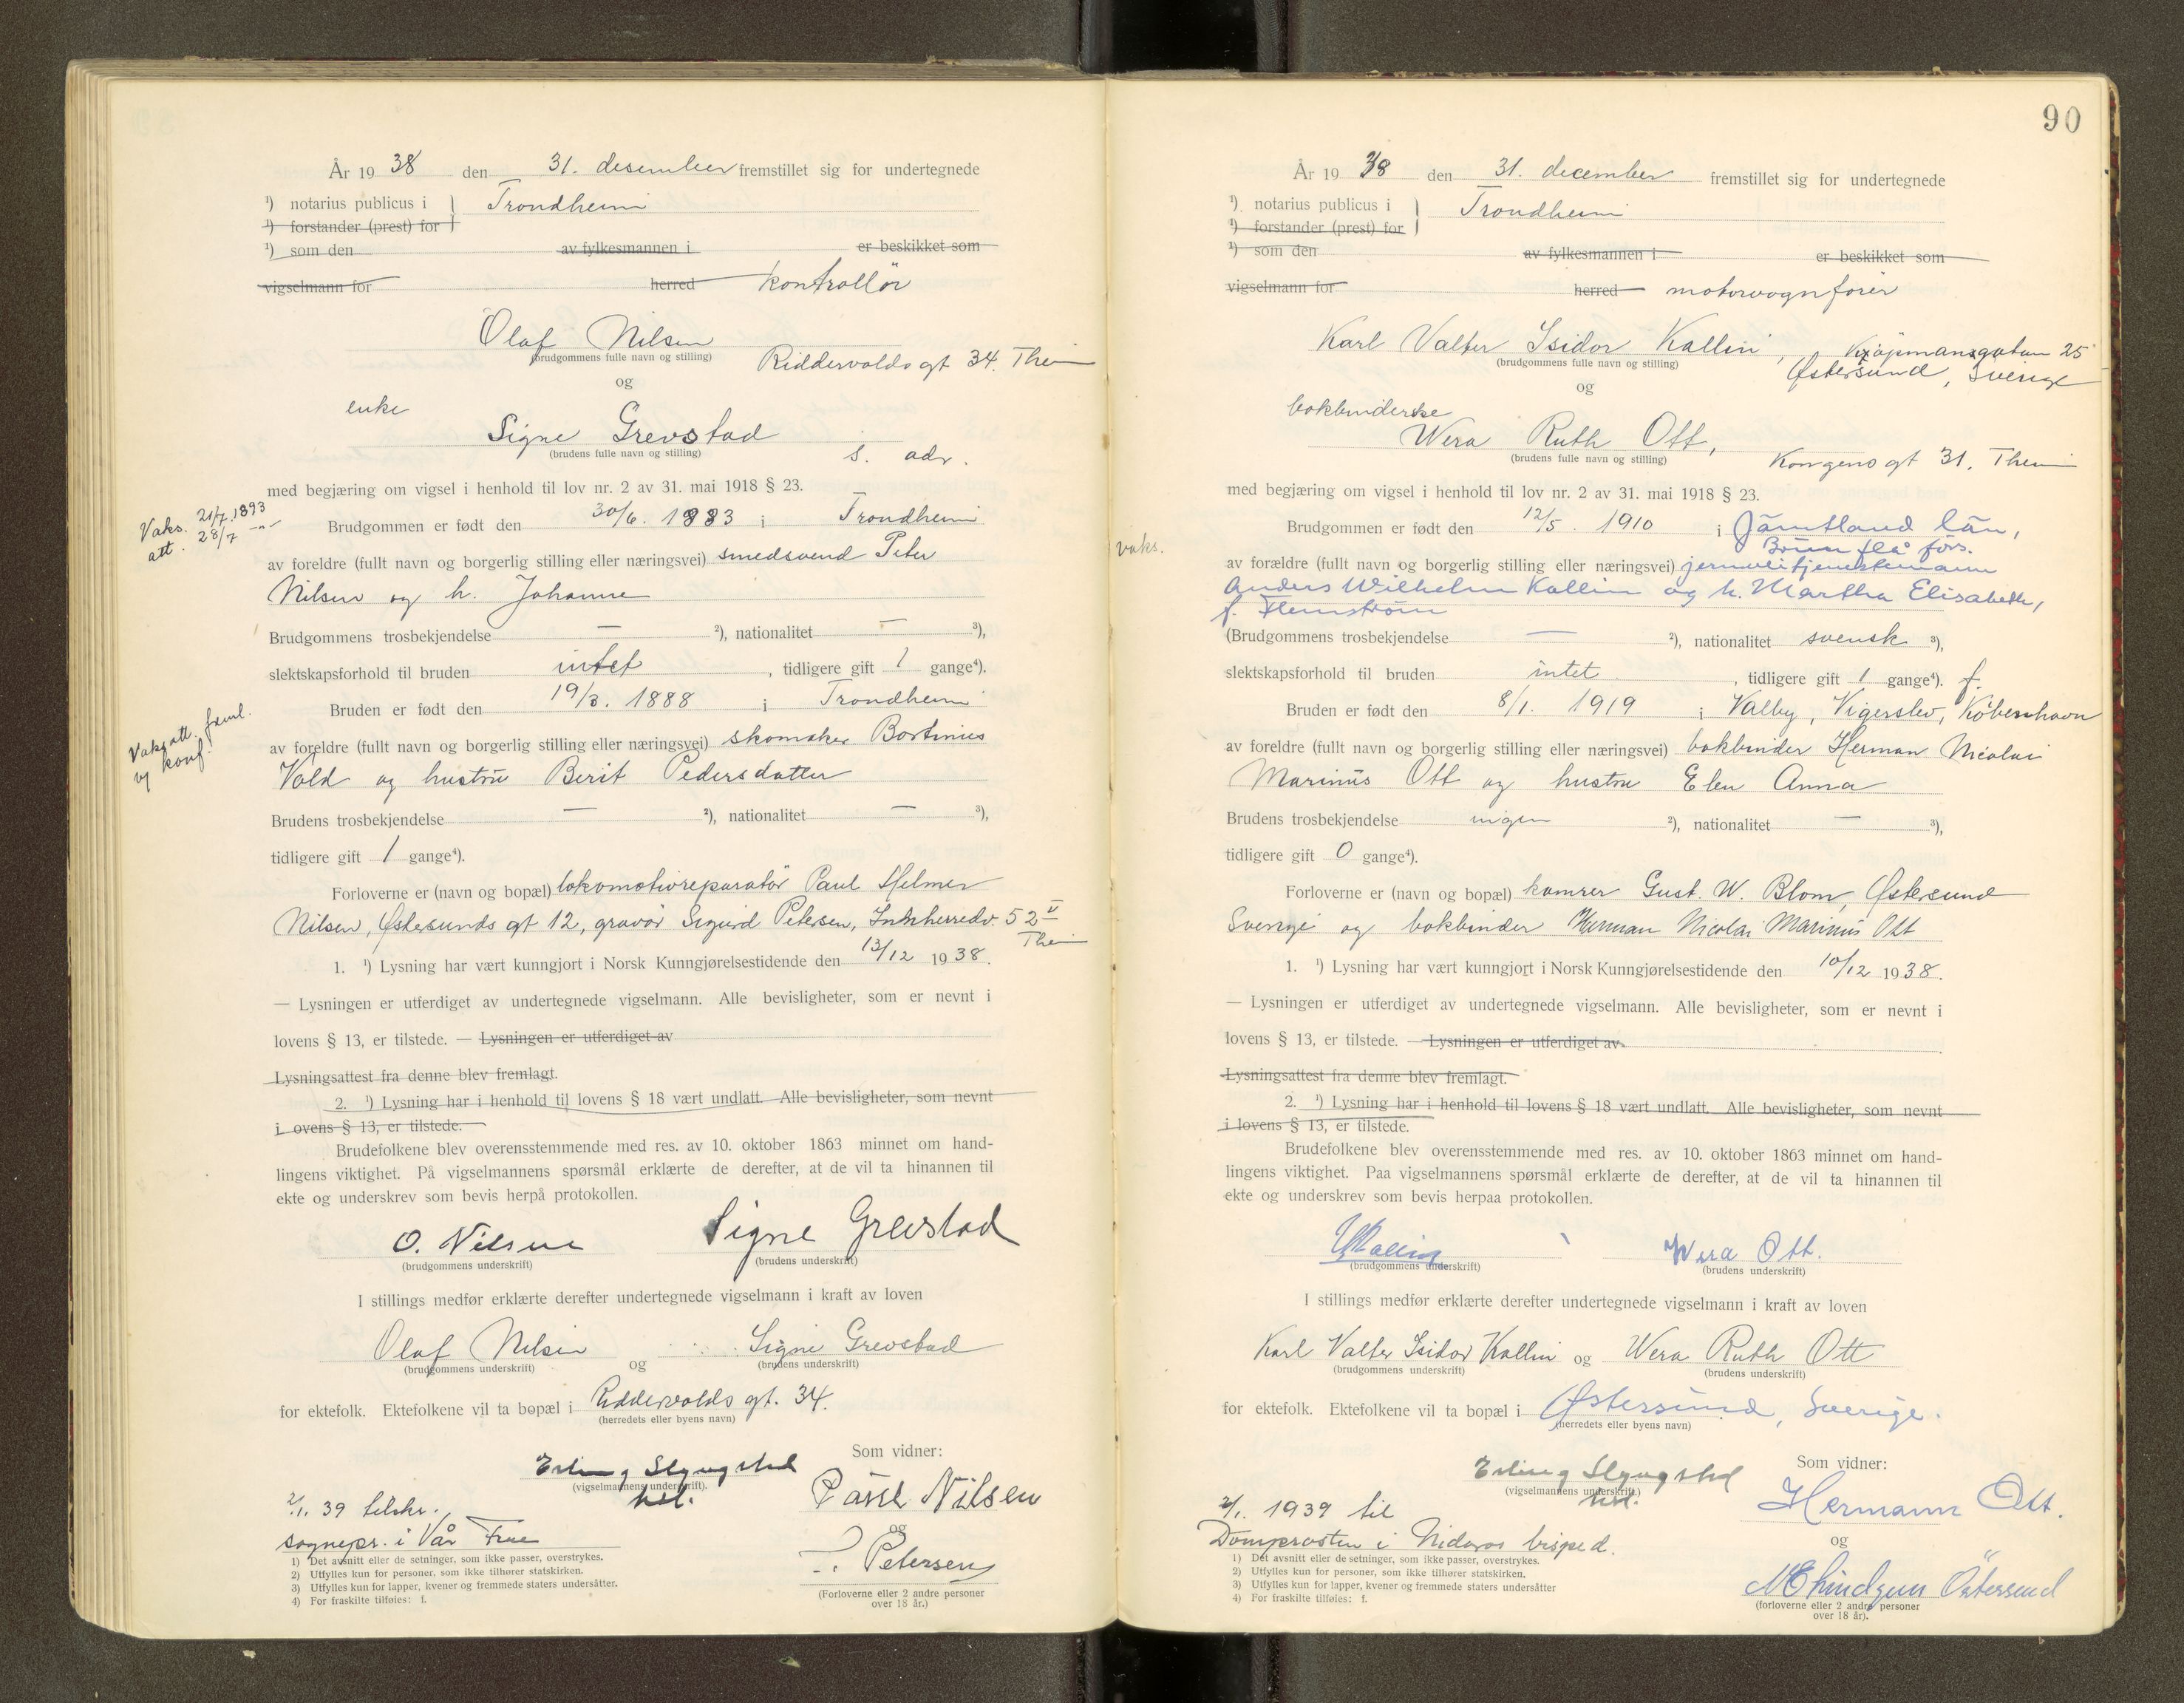 År 19 38 den 31. desember fremstillet sig for undertegnede
¹) notarius publicus i } Trondheim
¹) forstander (prest) for
¹) som den av fylkesmannen i er beskikket som
vigselmann for herred kontrollör
Olaf Nilsen
(brudgommens fulle navn og stilling) Riddervolds gt 34. Thein
og
enke
Signe Grevstad
(brudens fulle navn og stilling) s. adr.
med begjæring om vigsel i henhold til lov nr. 2 av 31. mai 1918 § 23.
Vaks. 21/7.1893
att. 28/7 -"-
Brudgommen er født den 30/6. 1883 i Trondheim
av foreldre (fullt navn og borgerlig stilling eller næringsvei) smedsvend Peter
Nilsen og h. Johanne
Brudgommens trosbekjendelse — ²), nationalitet — ³),
slektskapsforhold til bruden intet, tidligere gift 1 gange⁴).
Bruden er født den 19/3. 1888 i Trondheim
Vaks att. freml.
og konf.
av foreldre (fullt navn og borgerlig stilling eller næringsvei) skomaker Bortinius
Vold og hustru Berit Pedersdatter
Brudens trosbekjendelse — ²), nationalitet — ³),
tidligere gift 1 gange⁴).
Forloverne er (navn og bopæl) lokomotivreparatör Paul Helmer
Nilsen, Østersunds gt 12, gravör Sigurd Petersen, Innherredsv. 52 II
Thein
1. ¹) Lysning har vært kunngjort i Norsk Kunngjørelsestidende den 13/12 1938.
— Lysningen er utferdiget av undertegnede vigselmann. Alle bevisligheter, som er nevnt i
lovens § 13, er tilstede. — Lysningen er utferdiget av
Lysningsattest fra denne blev fremlagt.
2. ¹) Lysning har i henhold til lovens § 18 vært undlatt. Alle bevisligheter, som nevnt
i ovens § 13, er tilstede.
Brudefolkene blev overensstemmende med res. av 10. oktober 1863 minnet om hand-
lingens viktighet. På vigselmannens spørsmål erklærte de derefter, at de vil ta hinannen til
ekte og underskrev som bevis herpå protokollen.
O. Nilsen Signe Grevstad
(brudgommens underskrift) (brudens underskrift)
I stillings medfør erklærte derefter undertegnede vigselmann i kraft av loven
Olaf Nilsen og Signe Grevstad
(brudgommens underskrift) (brudens underskrift)
for ektefolk. Ektefolkene vil ta bopæl i Riddervolds gt. 34.
(herredets eller byens navn)
Som vidner:
Erling Slyngstad
(vigselmannens underskrift).
Paul Nilsen
2/1. 39 tilskr.
sognepr. i Vår Frue
og
Petersen
(Forloverne eller 2 andre personer
over 18 år.)
1) Det avsnitt eller de setninger, som ikke passer, overstrykes.
2) Utfylles kun for personer, som ikke tilhører statskirken.
3) Utfylles kun for lapper, kvener og fremmede staters undersåtter.
4) For fraskilte tilføies: f.
90
År 19 38 den 31. december fremstillet sig for undertegnede
¹) notarius publicus i } Trondheim
¹) forstander (prest) for
¹) som den av fylkesmannen i er beskikket som
vigselmann for herred motorvognfører
Karl Valter Isidor Kallin, Kjøpmansgatan 25
(brudgommens fulle navn og stilling) Østersund, Sverige
og
bokbinderske
Wera Ruth Ott,
(brudens fulle navn og stilling) Kongens gt 31, Thein
med begjæring om vigsel i henhold til lov nr. 2 av 31. mai 1918 § 23.
Brudgommen er født den 12/5. 1910 i Jämtland län,
vaks.
Brunflå förs.
av forældre (fullt navn og borgerlig stilling eller næringsvei) jernveitjenestemann
Anders Wilhelm Kallin og h. Martha Elisabeth,
f. Flemström
(Brudgommens trosbekjendelse — ²), nationalitet svensk ³),
slektskapsforhold til bruden intet, tidligere gift 1 gange⁴). f.
Bruden er født den 8/1. 1919 i Valby, Vigerslev, København
av foreldre (fullt navn og borgerlig stilling eller næringsvei) bokbinder Herman Nicolai
Marinus Ott og hustru Elen Anna
Brudens trosbekjendelse ingen ²), nationalitet — ³),
tidligere gift 0 gange⁴).
Forloverne er (navn og bopæl) kamrer Gust. W. Blom, Østersund
Sverige og bokbinder Herman Nicolai Marinus Ott
1. ¹) Lysning har vært kunngjort i Norsk Kunngjørelsestidende den 10/12 1938.
— Lysningen er utferdiget av undertegnede vigselmann. Alle bevisligheter, som er nevnt i
lovens § 13, er tilstede. — Lysningen er utferdiget av
Lysningsattest fra denne blev fremlagt.
2. ¹) Lysning har i henhold til lovens § 18 vært undlatt. Alle bevisligheter, som nevnt
i lovens § 13, er tilstede.
Brudefolkene blev overensstemmende med res. av 10. oktober 1863 minnet om hand-
lingens viktighet. Paa vigselmannens spørsmål erklærte de derefter, at de vil ta hinannen til
ekte og underskrev som bevis herpaa protokollen.
Kallin Wera Ott.
(brudgommens underskrift) (brudens underskrift)
I stillings medfør erklærte derefter undertegnede vigselmann i kraft av loven
Karl Valter Isidor Kallin og Wera Ruth Ott
(brudgommens underskrift) (brudens underskrift)
for ektefolk. Ektefolkene vil ta bopæl i Østersund, Sverige.
(herredets eller byens navn)
Som vidner:
Erling Slyngstad
(vigselmannens underskrift.)
Hermann Ott.
2/1. 1939 til
Domprosten i Nidaros bisped.
og
Östersund
(forloverne eller 2 andre personer
over 18 år).
1) Det avsnitt eller de setninger, som ikke passer, overstrykes.
2) Utfylles kun for personer, som ikke tilhører statskirken.
3) Utfylles kun for lapper, kvener og fremmede staters undersåtter
4) For fraskilte tilføies: f.